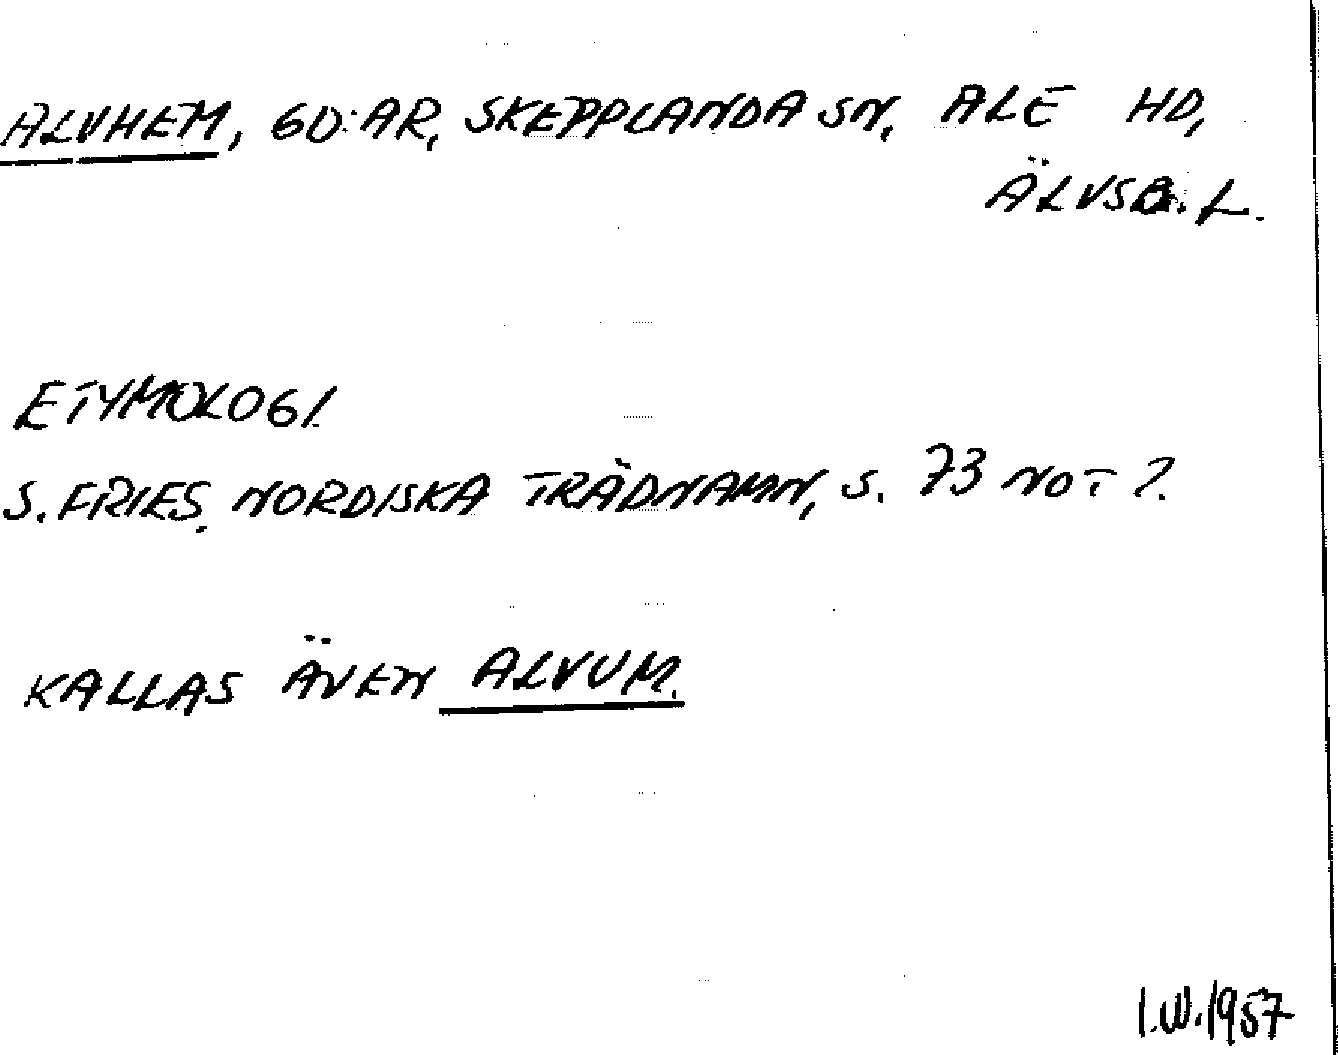 ALVHEM, GD:AR, SKEPPLANDA SN, ALE HD,
ÄLVSB. L.
ETYMOLOGI.
S. FRIES, NORDISKA TRÄDNAMN, S. 73 NOT 2.
KALLAS ÄVEN ALVUM.
I.W. 1957